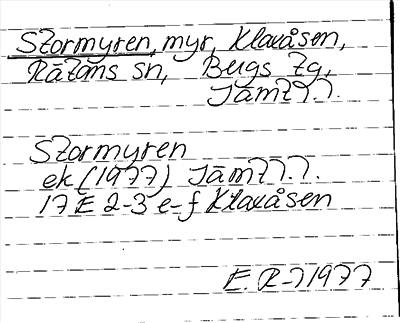 Stormyren, myr, Klaxåsen,
Rätans sn, Bergs tg,
Jämtl.
Stormyren
ek (1977) Jämtl.
17 E 2-3 e-f Klaxåsen
E. R-l 1977